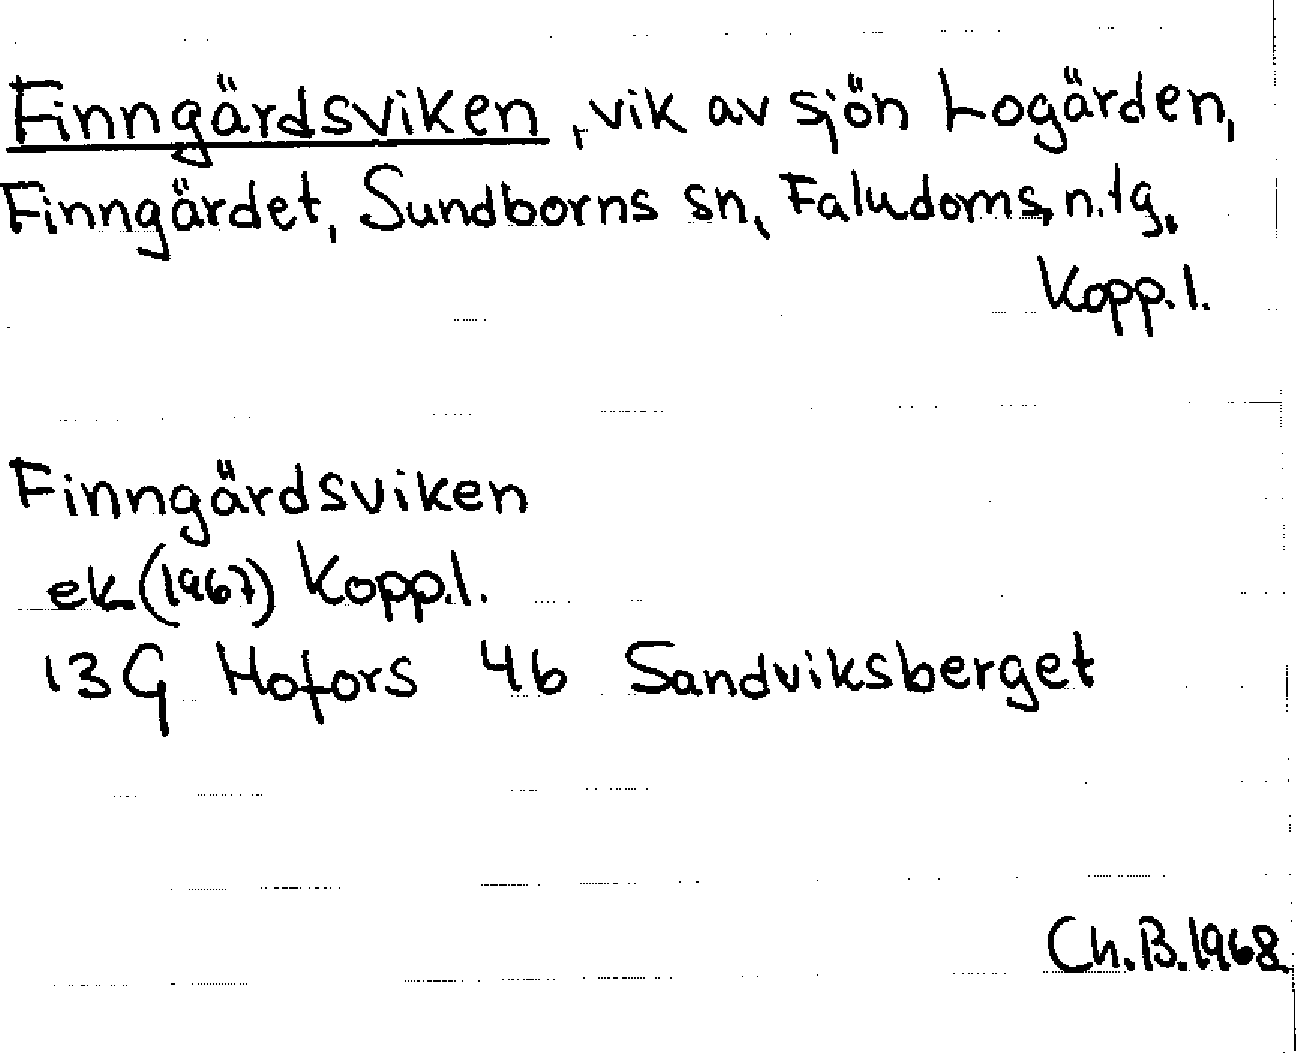 Finngärdsviken, vik av sjön Logärden,
Finngärdet, Sundborns sn, Faludoms n. tg.
Kopp. l.
Finngärdsviken
ek (1967) Kopp.l.
13G Hofors 4b Sandviksberget
Ch.B.1968